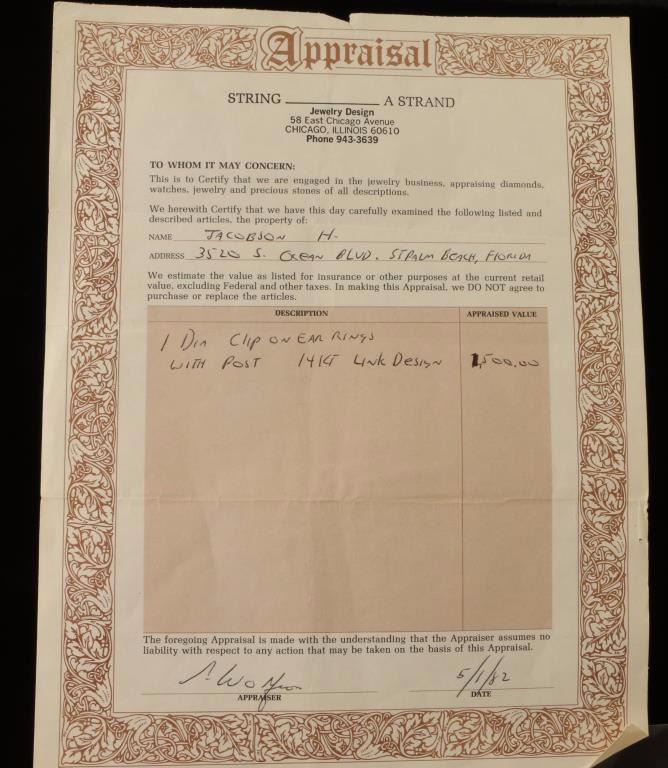 Appraisal
STRING A STRAND
Jewelry Design
58 East Chicago Avenue
CHICAGO, ILLINOIS 60610
Phone 943-3639
TO WHOM IT MAY CONCERN:
This is to Certify that we are engaged in the jewelry business, appraising diamonds,
watches, jewelry and precious stones of all descriptions.
We herewith Certify that we have this day carefully examined the following listed and
described articles, the property of:
NAME JACOBSON H.
ADDRESS 3520 S. OCEAN BLVD. PALM BEACH, FLORIDA
We estimate the value as listed for insurance or other purposes at the current retail
value, excluding Federal and other taxes. In making this Appraisal, we DO NOT agree to
purchase or replace the articles.
DESCRIPTION APPRAISED VALUE
1 DIA CLIP ON EAR RINGS
WITH POST 14KT LINK DESIGN 1,500.00
The foregoing Appraisal is made with the understanding that the Appraiser assumes no
liability with respect to any action that may be taken on the basis of this Appraisal.
5/1/82
APPRAISER DATE